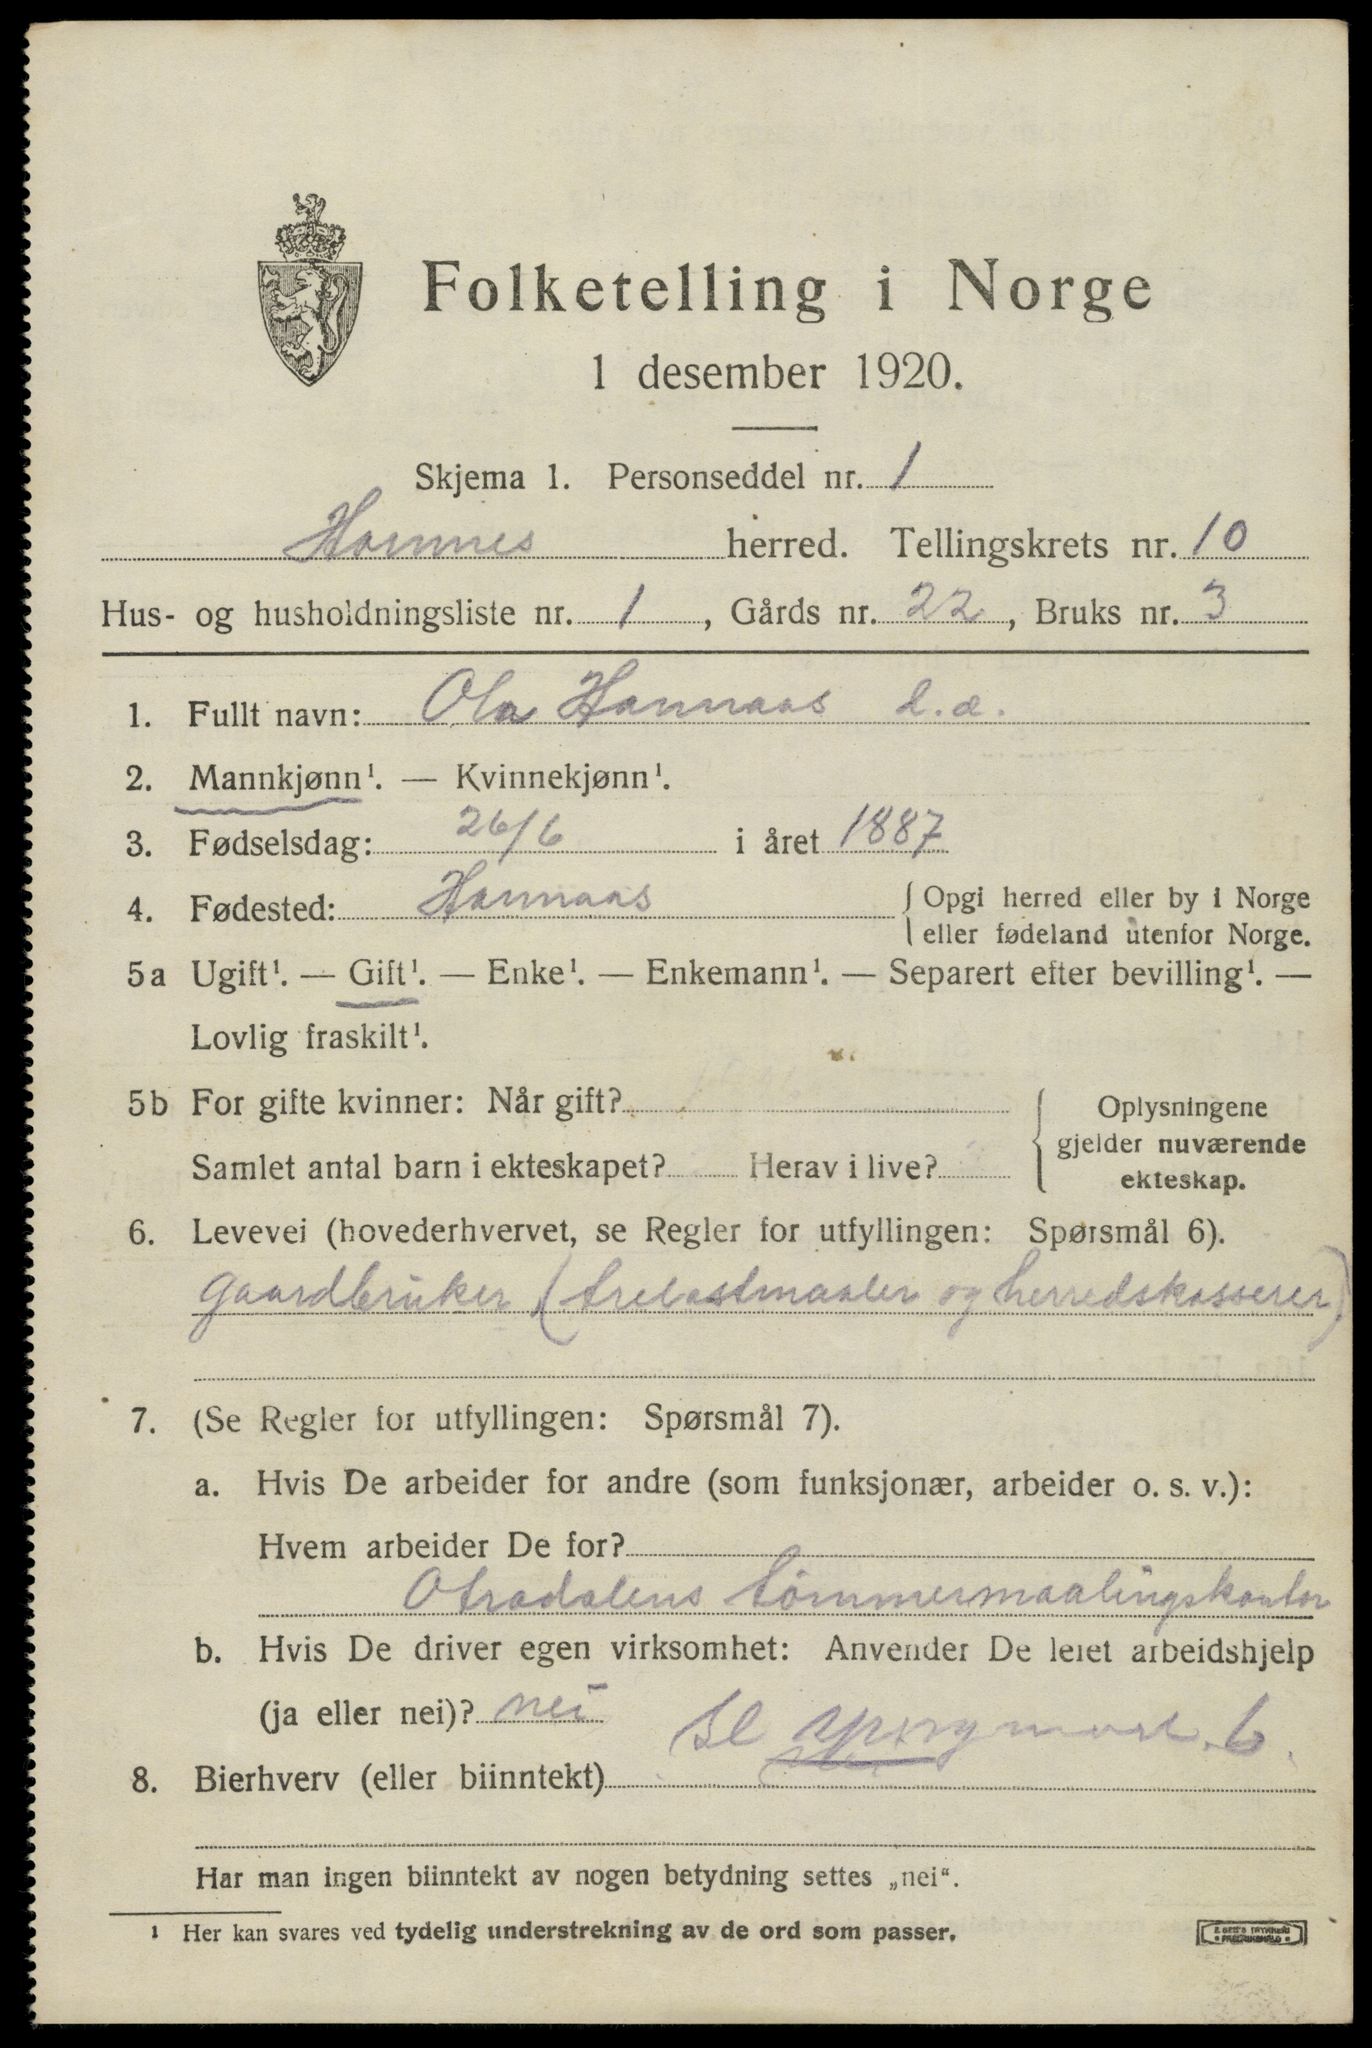 Folketelling i Norge
1 desember 1920.
Skjema 1. Personseddel nr. 1
Hornnes herred. Tellingskrets nr. 10
Hus- og husholdningsliste nr. 1, Gårds nr. 22, Bruks nr. 3
1. Fullt navn: Ola Hannaas d.æ.
2. Mannkjønn¹. — Kvinnekjønn¹.
3. Fødselsdag: 26/6 i året 1887
4. Fødested: Hannaas { Opgi herred eller by i Norge
eller fødeland utenfor Norge.
5a Ugift¹. — Gift¹. — Enke¹. — Enkemann¹. — Separert efter bevilling¹. —
Lovlig fraskilt¹.
5b For gifte kvinner: Når gift? { Oplysningene
gjelder nuværende
Samlet antal barn i ekteskapet? Herav i live? ekteskap.
6. Levevei (hovederhvervet, se Regler for utfyllingen: Spørsmål 6).
gaardbruker (trelastmaaler og herredskasserer)
7. (Se Regler for utfyllingen: Spørsmål 7).
a. Hvis De arbeider for andre (som funksjonær, arbeider o. s. v.):
Hvem arbeider De for?
Otradalens tømmermaalingskontor
b. Hvis De driver egen virksomhet: Anvender De leiet arbeidshjelp
(ja eller nei)? nei
8. Bierhverv (eller biinntekt) 6.
Har man ingen biinntekt av nogen betydning settes „nei“.
¹ Her kan svares ved tydelig understrekning av de ord som passer.